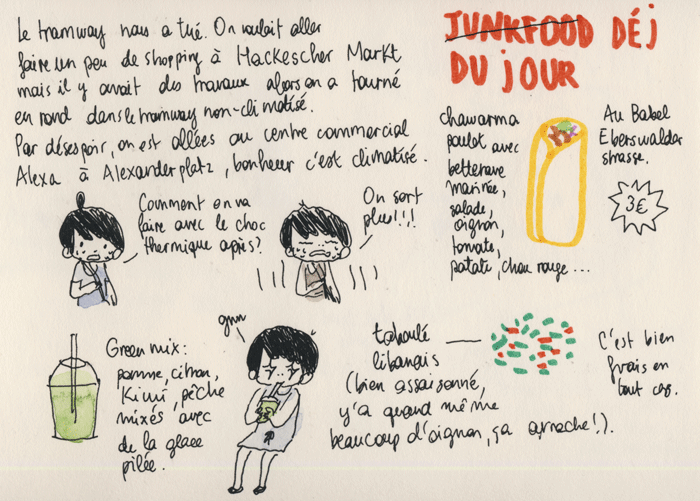 Le tramway nous a tué. On voulait aller
faire un peu de shopping à Hackescher Markt
mais il y avait des travaux alors on a tourné
en rond dans le tramway non-climatisé.
Par désespoir, on est allées au centre commercial
Alexa à Alexanderplatz, bonheur c'est climatisé.
JUNKFOOD DÉJ
DU JOUR
chawarma
poulet avec
betterave
marinée,
salade,
oignon,
tomate,
patate, chou rouge...
Au Babel
Eberswalder
strasse.
3€
Comment on va
faire avec le choc
thermique après?
On sort
plus!!!
Green mix:
pomme, citron,
Kiwi, pêche
mixés avec
de la glace
pilée.
gnn
taboulé
libanais
(bien assaisonné,
y'a quand même
beaucoup d'oignon, ça arrache!).
C'est bien
frais en
tout cas.